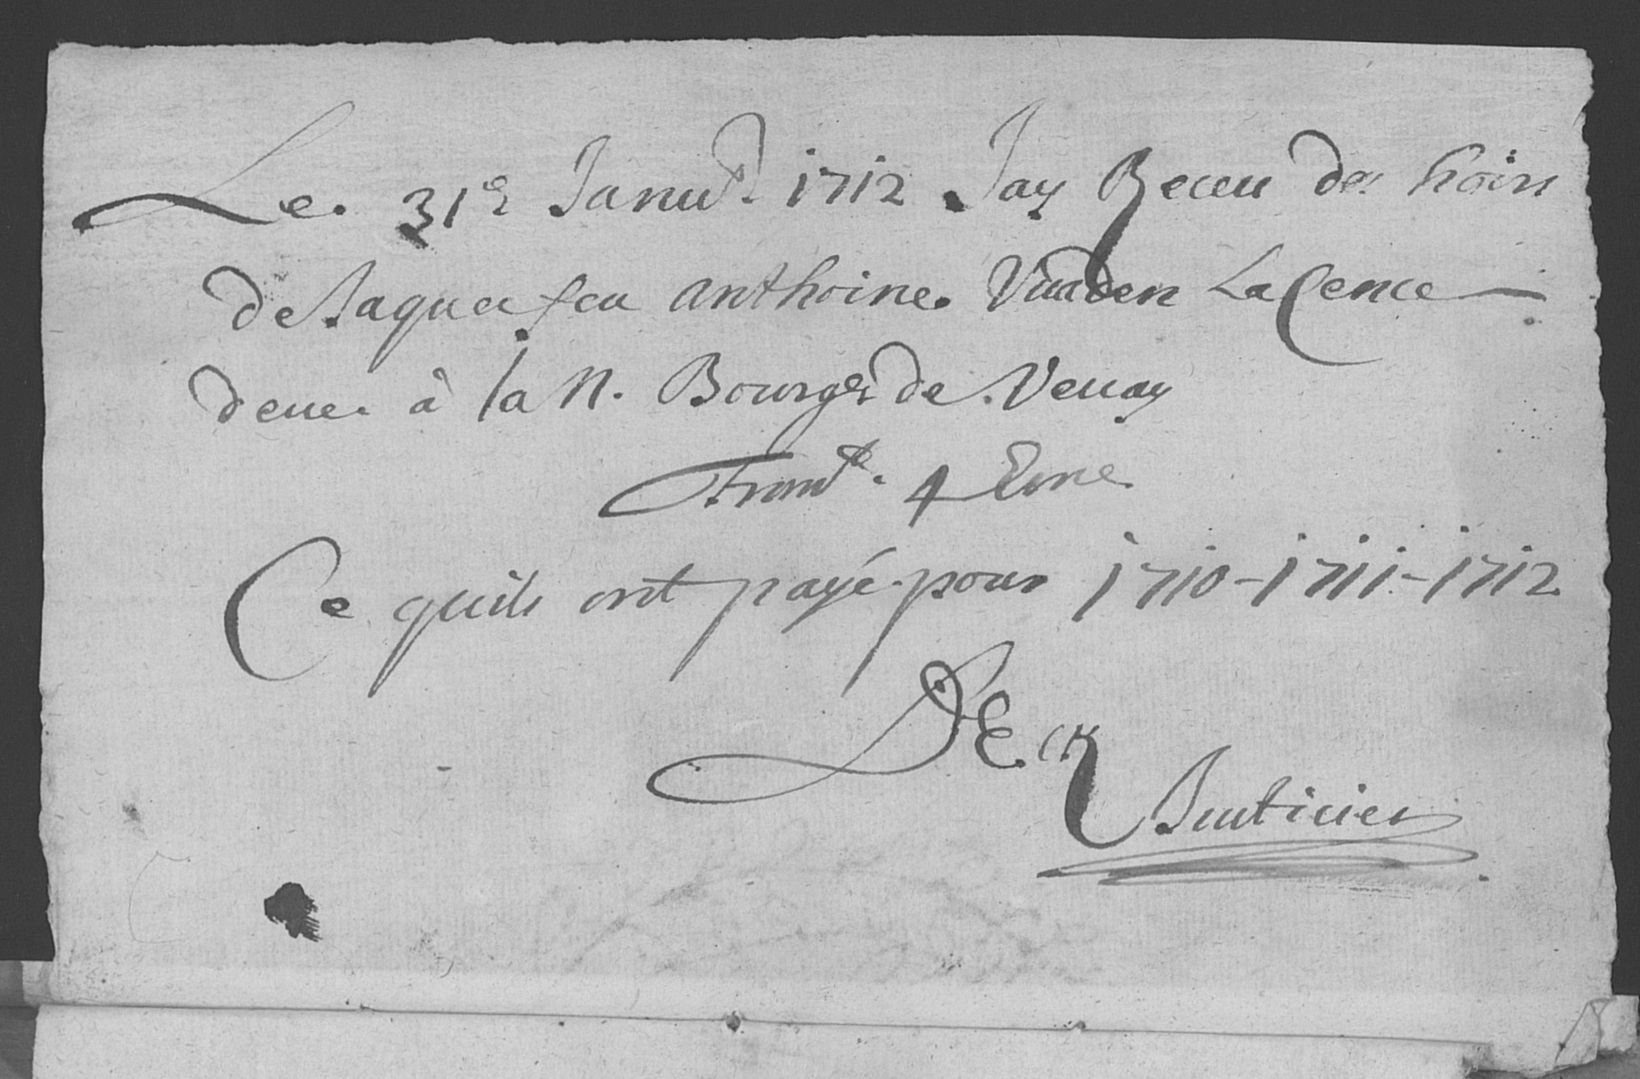 Le 31e Janur. 1712 Jay Receu des hoirs
de Jaques feu Anthoine Vuaden La Cence
deue à la N. Bourge de Vevay
Fromt. 4 Eme
Ce quils ont payé pour 1710 - 1711 - 1712